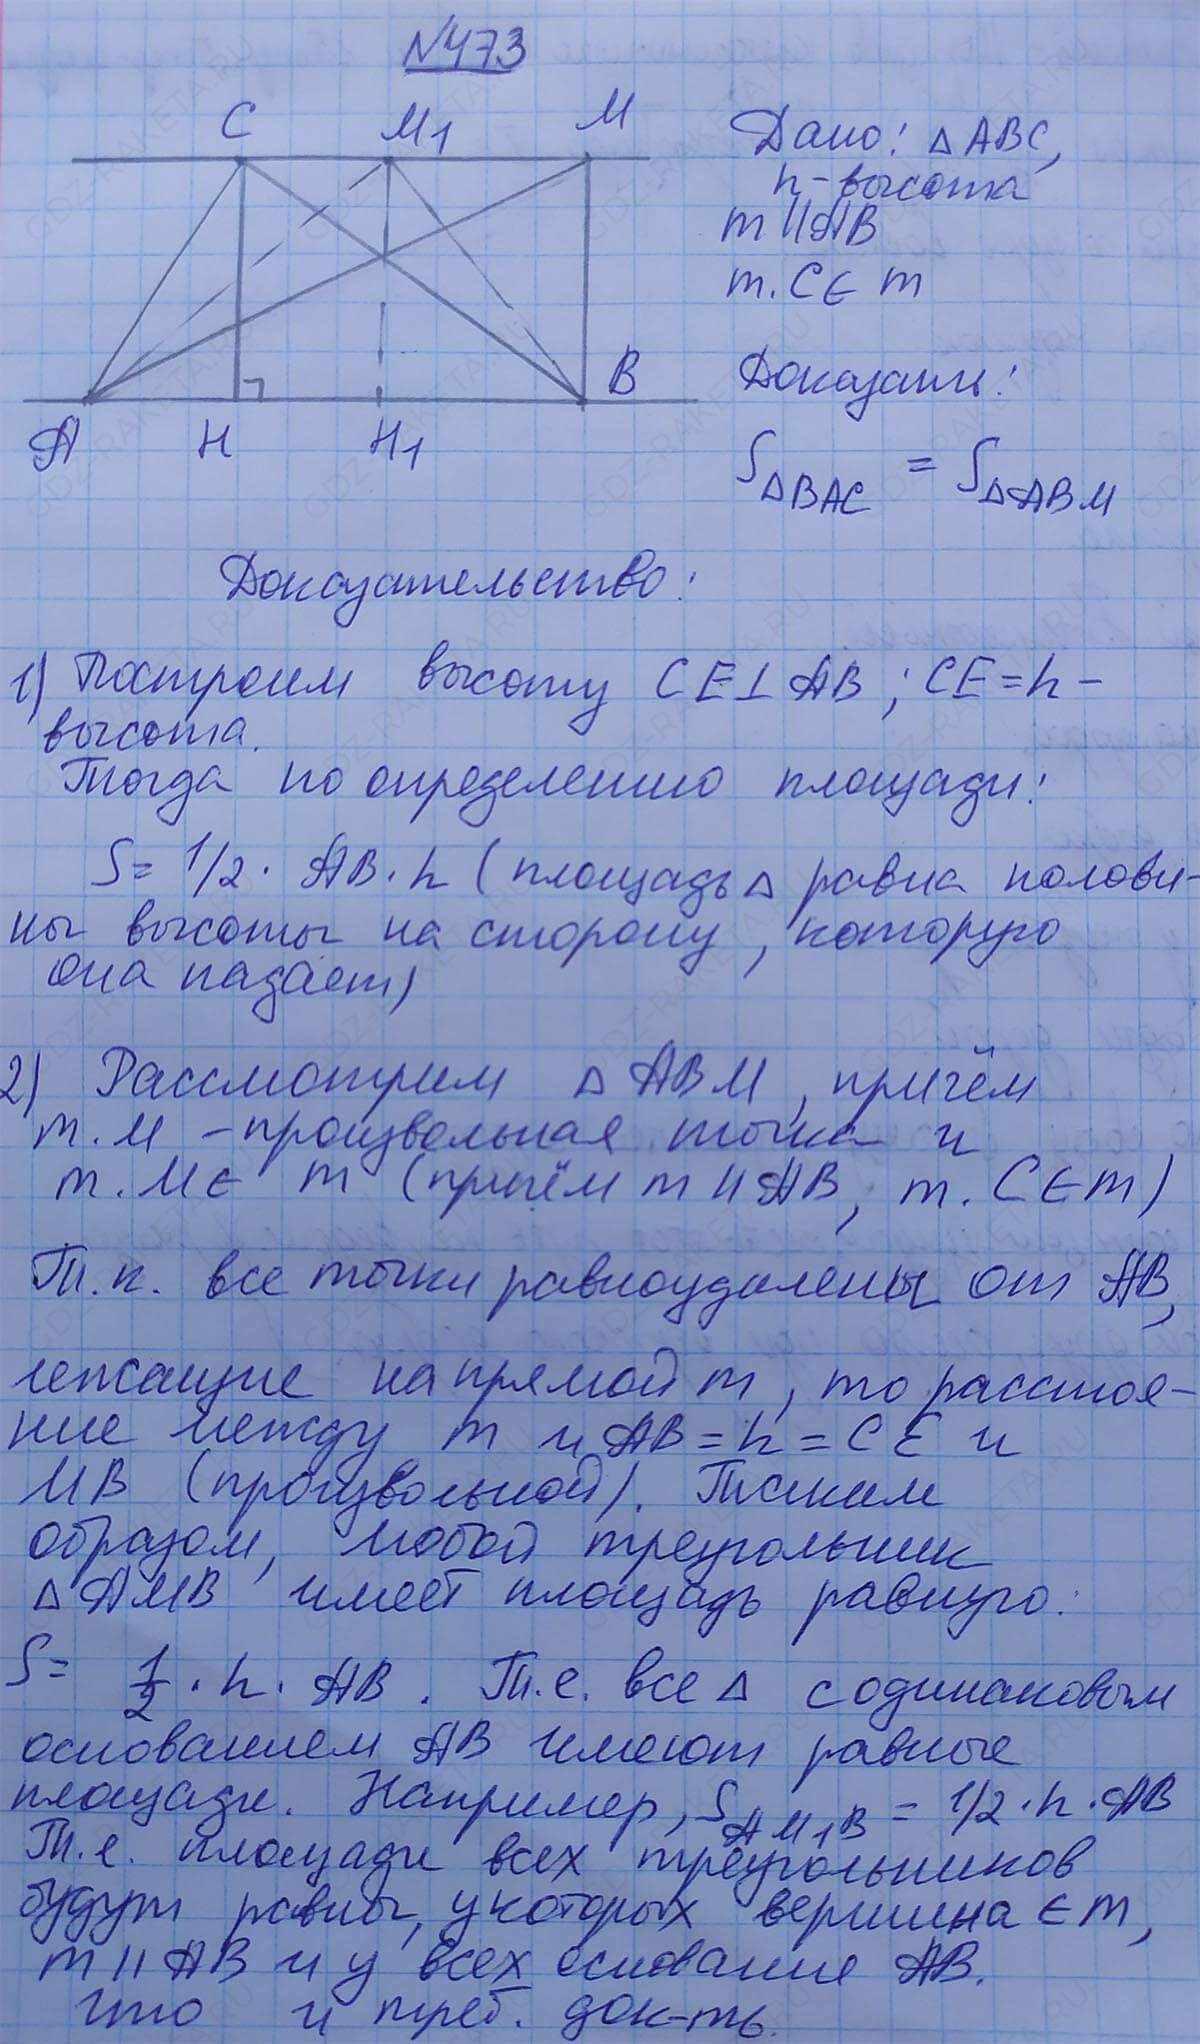 №473
C M1 M
Дано: △ABC,
h-высота
m || AB
т. C ∈ m
A H H1 B
Доказать:
S△BAC = S△ABM
Доказательство:
1) Построим высоту CE⊥AB; CE=h-
высота.
Тогда по определению площади:
S= 1/2 · AB · h (площадь △ равна полови-
ны высоты на сторону, которую
она падает)
2) Рассмотрим △ ABM, причём
т. M - произвольная точка и
т. M ∈ m (причём m || AB, т. C ∈ m)
Т.к. все точки равноудалены от AB,
лежащие на прямой m, то расстоя-
ние между m и AB = h = CE и
MB (произвольной). Таким
образом, любой треугольник
△ AMB имеет площадь равную:
S= 1/2 · h · AB. Т.е. все △ с одинаковым
основанием AB имеют равные
площади. Например, SAM1B = 1/2 · h · AB
Т.е. площади всех треугольников
будут равны, у которых вершина ∈ m,
m || AB и у всех основание AB.
что и треб. док-ть.